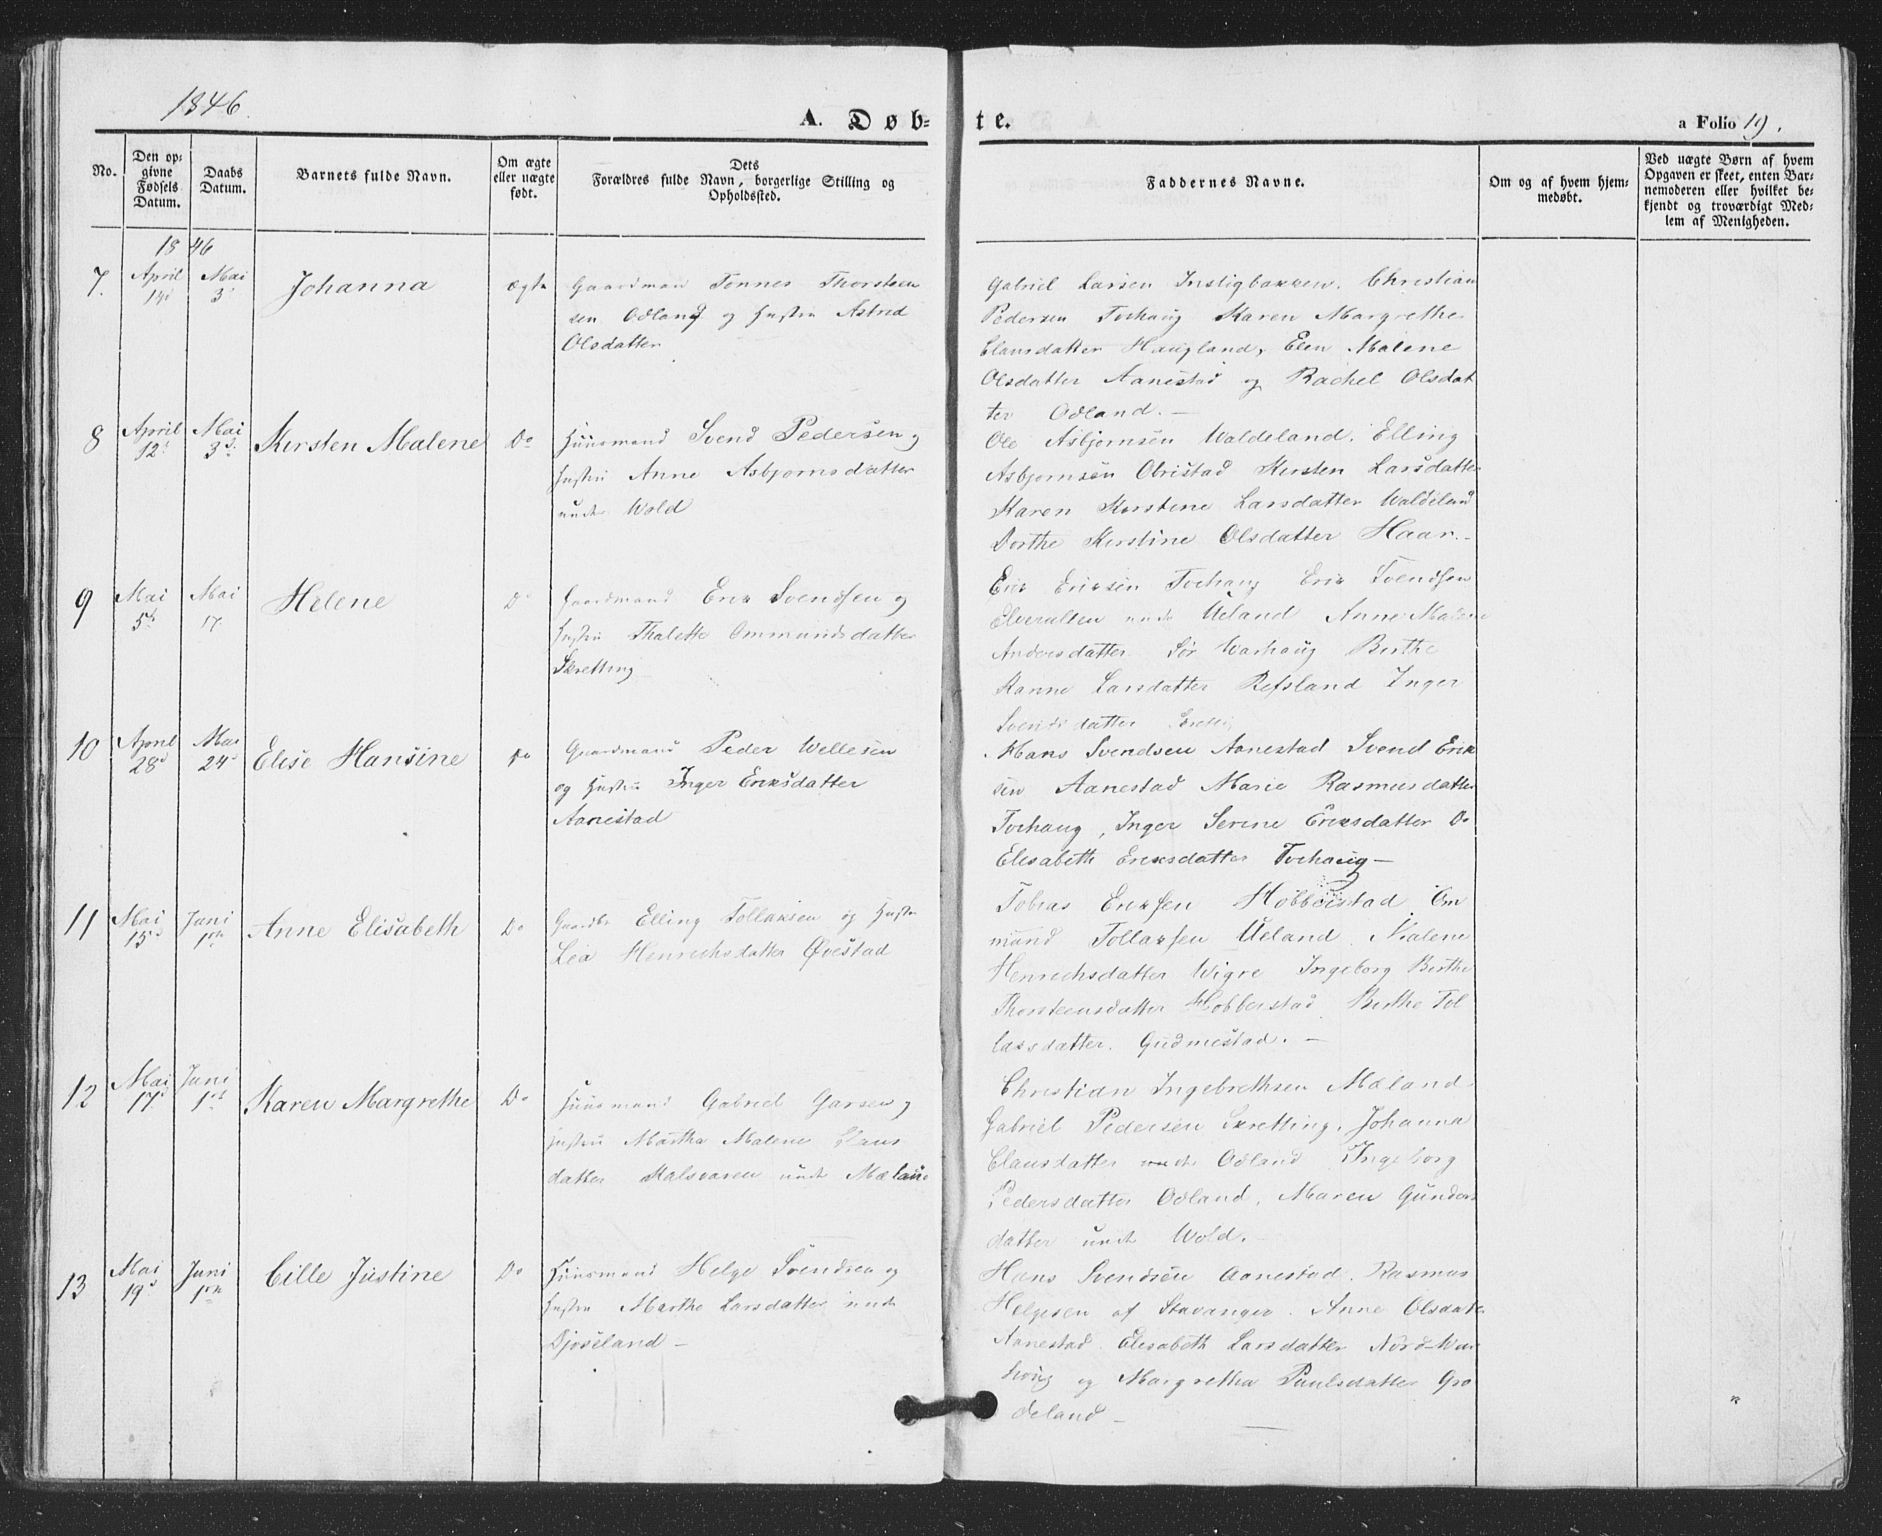 1846.
A. Døb-
te.
a Folio 19.
No.
Den op-
givne
Fødsels
Datum.
Daabs
Datum.
Barnets fulde Navn.
Om ægte
eller uægte
født.
Dets
Forældres fulde Navn, borgerlige Stilling og
Opholdssted.
Faddernes Navne.
Om og af hvem hjem-
medøbt.
Ved uægte Børn af hvem
Opgaven er skeet, enten Bar-
nemoderen eller hvilket be-
kjendt og troværdigt Med-
lem af Menigheden.
1846
7. April 14d Mai 3d Johanna ægte
Gaardman Tønnes Thorsteen
sen Odland og Hustru Astrid
Olsdatter
Gabriel Larsen Christian
Pedersen Torhaug Karen Margrethe
Clausdatter Haugland, Elen Malene
Olsdatter Aanestad og Rachel Olsdat
ter Odland. —
8 April 12t Mai 3d Kirsten Malene Do
Huusmand Svend Pedersen og
Hustru Anne Asbjørnsdatter
unde Wold
Ole Asbjørnsen Waldeland. Elling
Asbjørnsen Obristad Kirsten Larsdatter
Karen Kirstine Larsdatter Waldeland
Dorthe Kirstine Olsdatter Haar. —
9 Mai 5th Mai 17 Helene Do
Gaardmand Erik Svendsen og
Hustru Thalette Ommundsdatter
Skretting
Erik Eriksen Torhaug Erik Svendsen
unde Ueland Anne Malene
Andersdatter Sør Warhaug Berthe
Hanne Larsdatter Refsland Inger
Svendsdatter
10 April 28d Mai 24d Elise Hansine Do
Gaardmand Peder Wellesen
og Hustru Inger Eriksdatter
Aanestad
Hans Svendsen Aanestad Svend Erik
sen Aanestad Marie Rasmusdatter
Torhaug, Inger Serine Eriksdatter Do
Elisabeth Eriksdatter Torhaug —
11 Mai 15d Juni 1ste Anne Elisabeth Do
Gaardbr Elling Tollaksen og Hustru
Lea Henrichsdatter Øvestad
Tobias Eriksen Hobberstad Om
mund Tollaksen Ueland. Malene
Henrichsdatter Wigre Ingeborg Berthe
Thorsteensdatter Hobberstad. Berthe Tol
laksdatter. Gudmestad. —
12 Mai 17d Juni 1st Karen Margrethe Do
Huusmand Gabriel Garsen og
Hustru Martha Malene Claus
datter unde Mæland
Christian Ingebrethsen Mæland
Gabriel Pedersen Skretting, Johanna
Clausdatter unde Odland Ingeborg
Pedersdatter Odland. Maren Gunders
datter unde Wold. —
13 Mai 19d Juni 1ste Cille Justine Do
Huusmand Helge Svendsen og
Hustru Marthe Larsdatter unde
Djøseland —
Hans Svendsen Aanestad. Rasmus
Helgesen af Stavanger. Anne Olsdatter
Aanestad. Elisabeth Larsdatter Nord-War
houg og Margretha Paulsdatter Gro
deland —